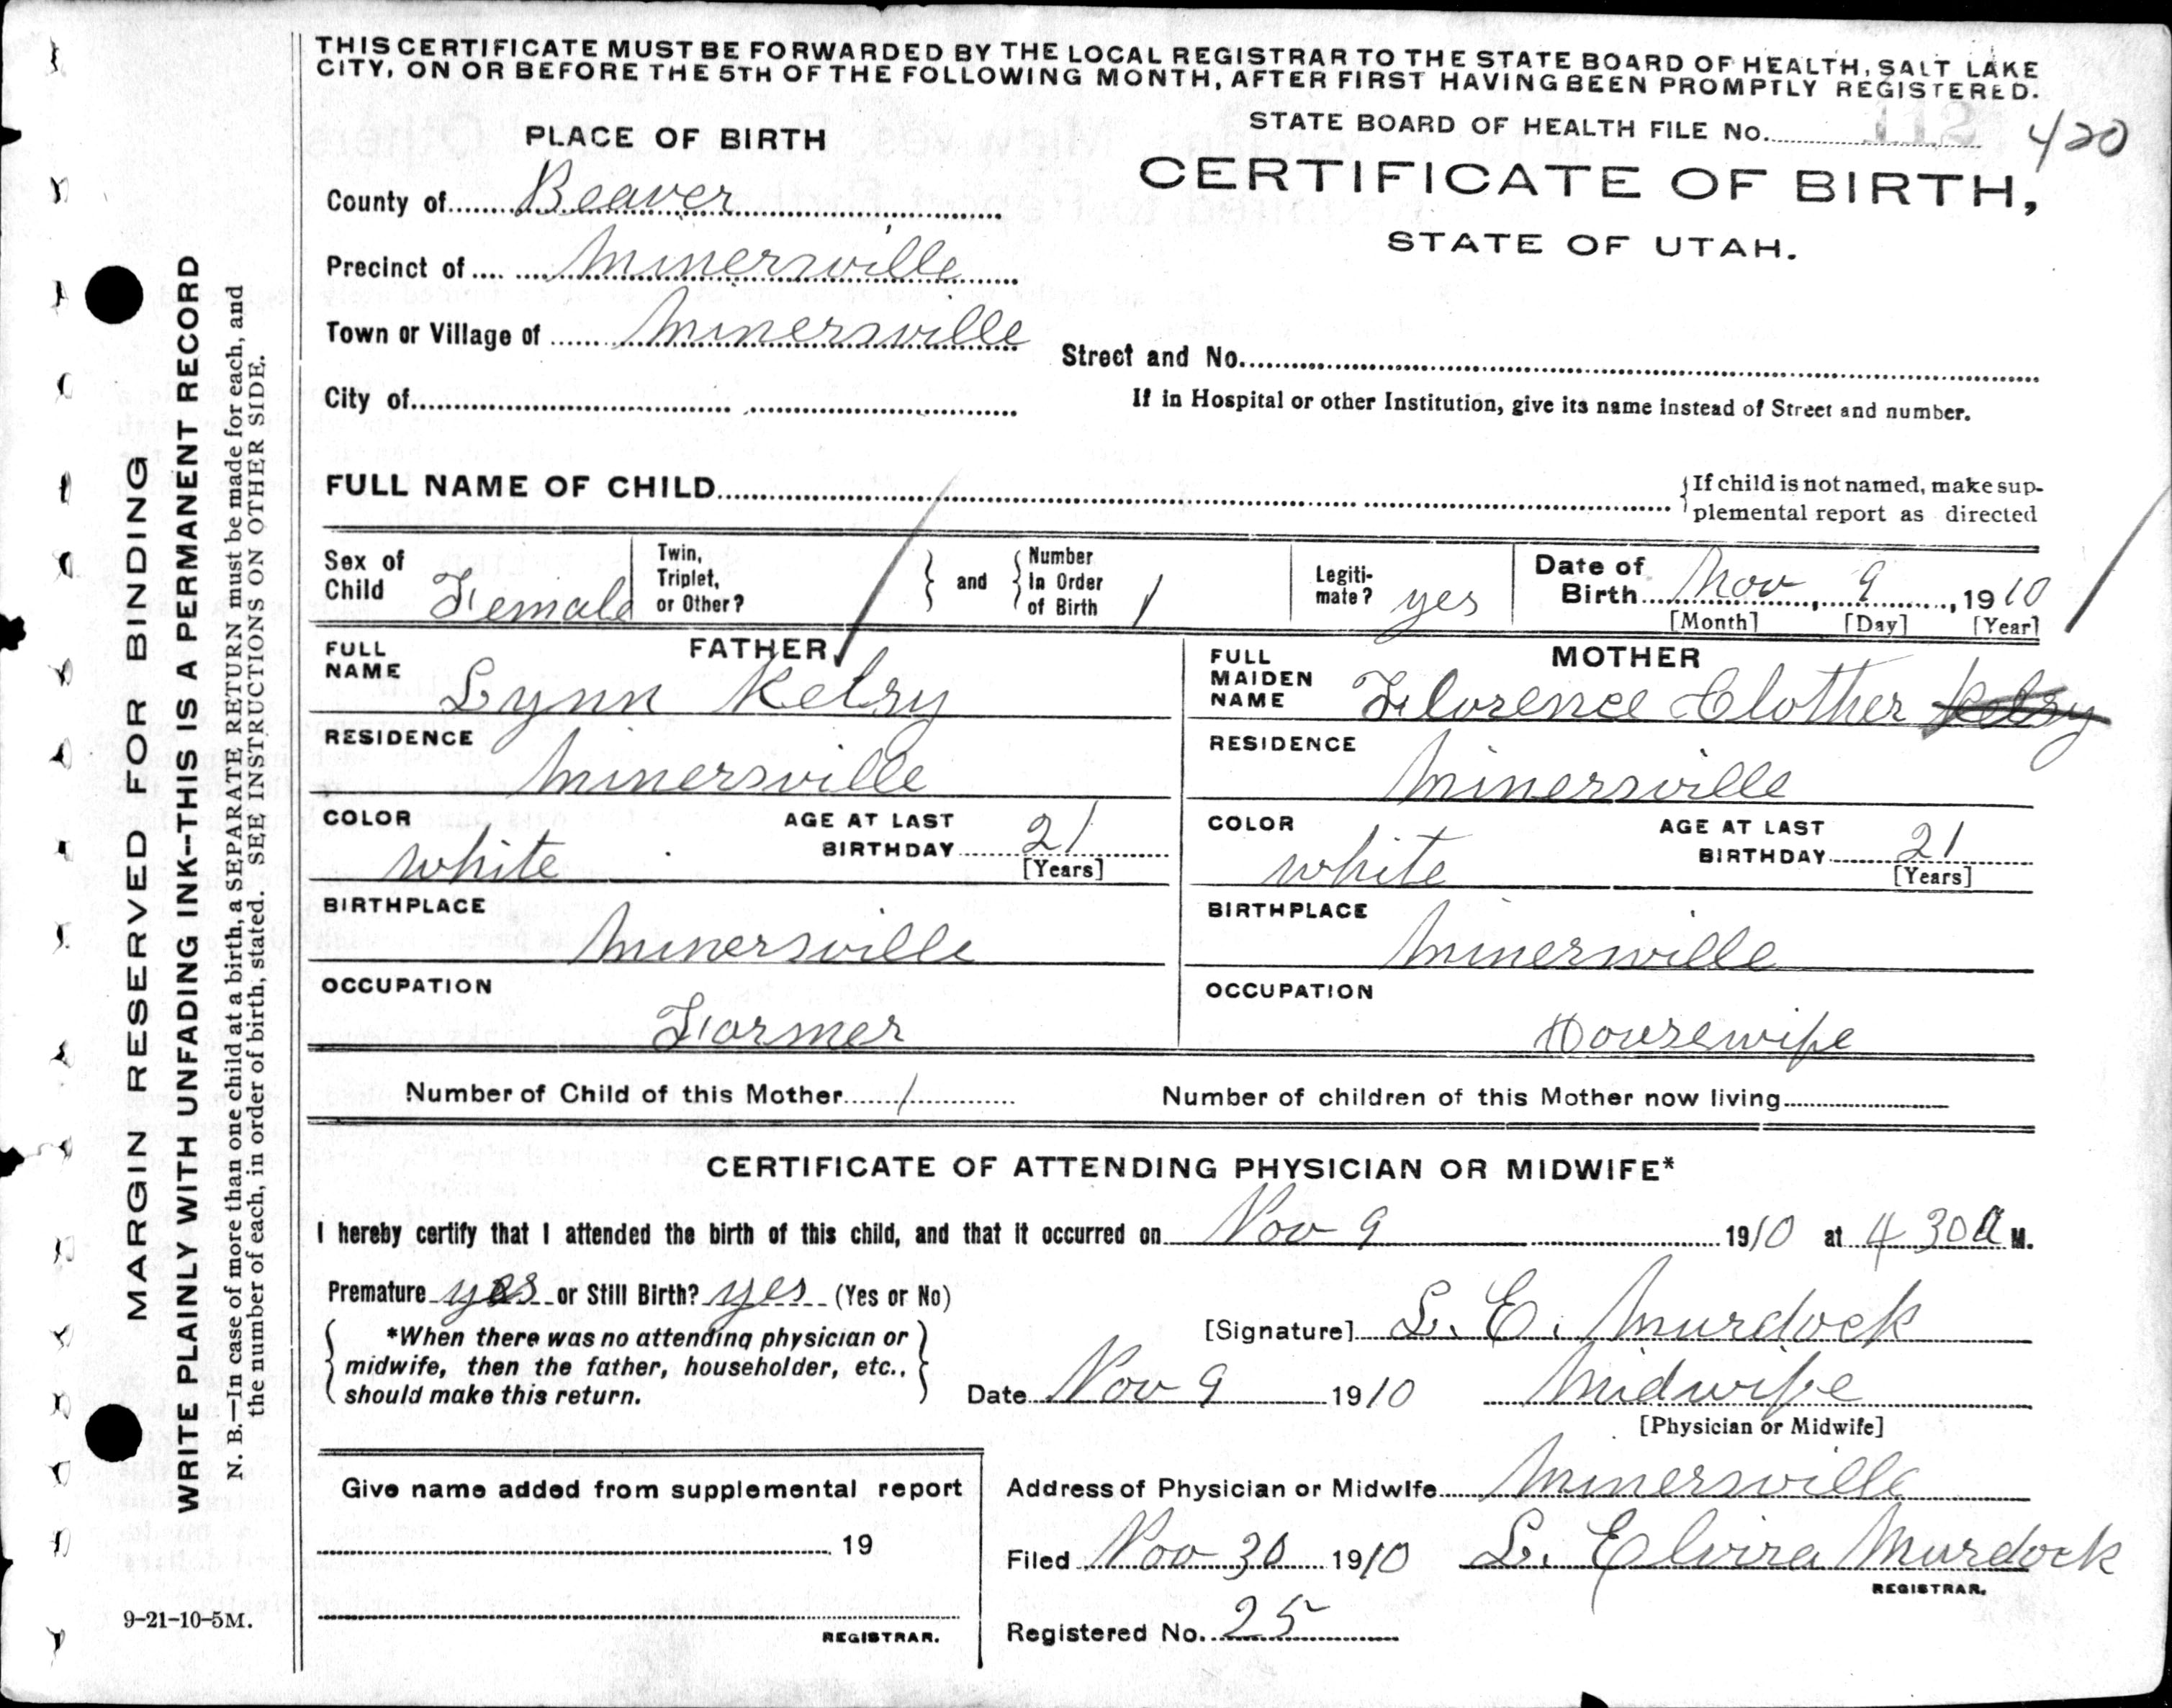 THIS CERTIFICATE MUST BE FORWARDED BY THE LOCAL REGISTRAR TO THE STATE BOARD OF HEALTH, SALT LAKE
CITY, ON OR BEFORE THE 5TH OF THE FOLLOWING MONTH, AFTER FIRST HAVING BEEN PROMPTLY REGISTERED.
STATE BOARD OF HEALTH FILE No. 112 420
PLACE OF BIRTH
CERTIFICATE OF BIRTH,
STATE OF UTAH.
County of Beaver
Precinct of Minersville
Town or Village of Minersville
Street and No.
City of
If in Hospital or other Institution, give its name instead of Street and number.
FULL NAME OF CHILD
If child is not named, make sup-
plemental report as directed
Sex of Child Female
Twin, Triplet, or Other?
and
Number In Order of Birth 1
Legiti-mate? yes
Date of Birth Nov, 9, 1910
[Month] [Day] [Year]
FATHER
FULL NAME Lynn Kelsy
RESIDENCE Minersville
COLOR white
AGE AT LAST BIRTHDAY 21
[Years]
BIRTHPLACE Minersville
OCCUPATION Farmer
MOTHER
FULL MAIDEN NAME Florence Clother Kelsy
RESIDENCE Minersville
COLOR white
AGE AT LAST BIRTHDAY 21
[Years]
BIRTHPLACE Minersville
OCCUPATION Housewife
Number of Child of this Mother 1
Number of children of this Mother now living
CERTIFICATE OF ATTENDING PHYSICIAN OR MIDWIFE*
I hereby certify that I attended the birth of this child, and that it occurred on Nov 9 1910 at 4 30 a M.
Premature yes or Still Birth? yes (Yes or No)
*When there was no attending physician or
midwife, then the father, householder, etc.,
should make this return.
[Signature] L. E. Murdock
Date Nov 9 1910
Midwife
[Physician or Midwife]
Give name added from supplemental report
19
REGISTRAR.
Address of Physician or Midwife Minersville
Filed Nov 30 1910 L. Elvira Murdock
REGISTRAR.
Registered No. 25
MARGIN RESERVED FOR BINDING
WRITE PLAINLY WITH UNFADING INK--THIS IS A PERMANENT RECORD
N. B.—In case of more than one child at a birth, a SEPARATE RETURN must be made for each, and
the number of each, in order of birth, stated. SEE INSTRUCTIONS ON OTHER SIDE.
9-21-10-5M.